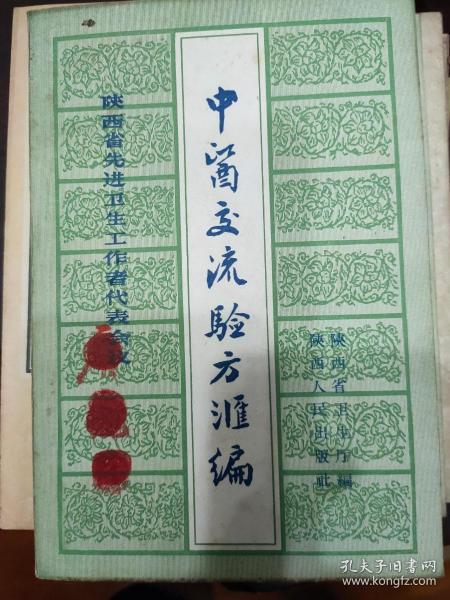 陕西省先进卫生工作者代表会议
中医交流验方汇编
陕西省卫生厅编
陕西人民出版社
孔夫子旧书网
www.kongfz.com